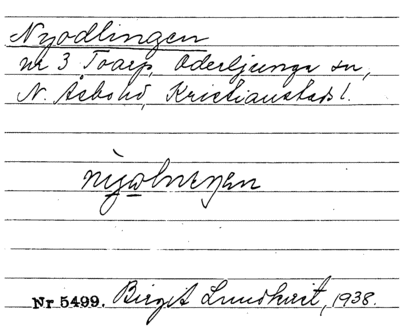 Nyodlingen
nr 3 Toarp, Oderljunga sn,
N. Åsbo hd, Kristianstads l.
Nr 5499. Birgit Lundkvist, 1938.